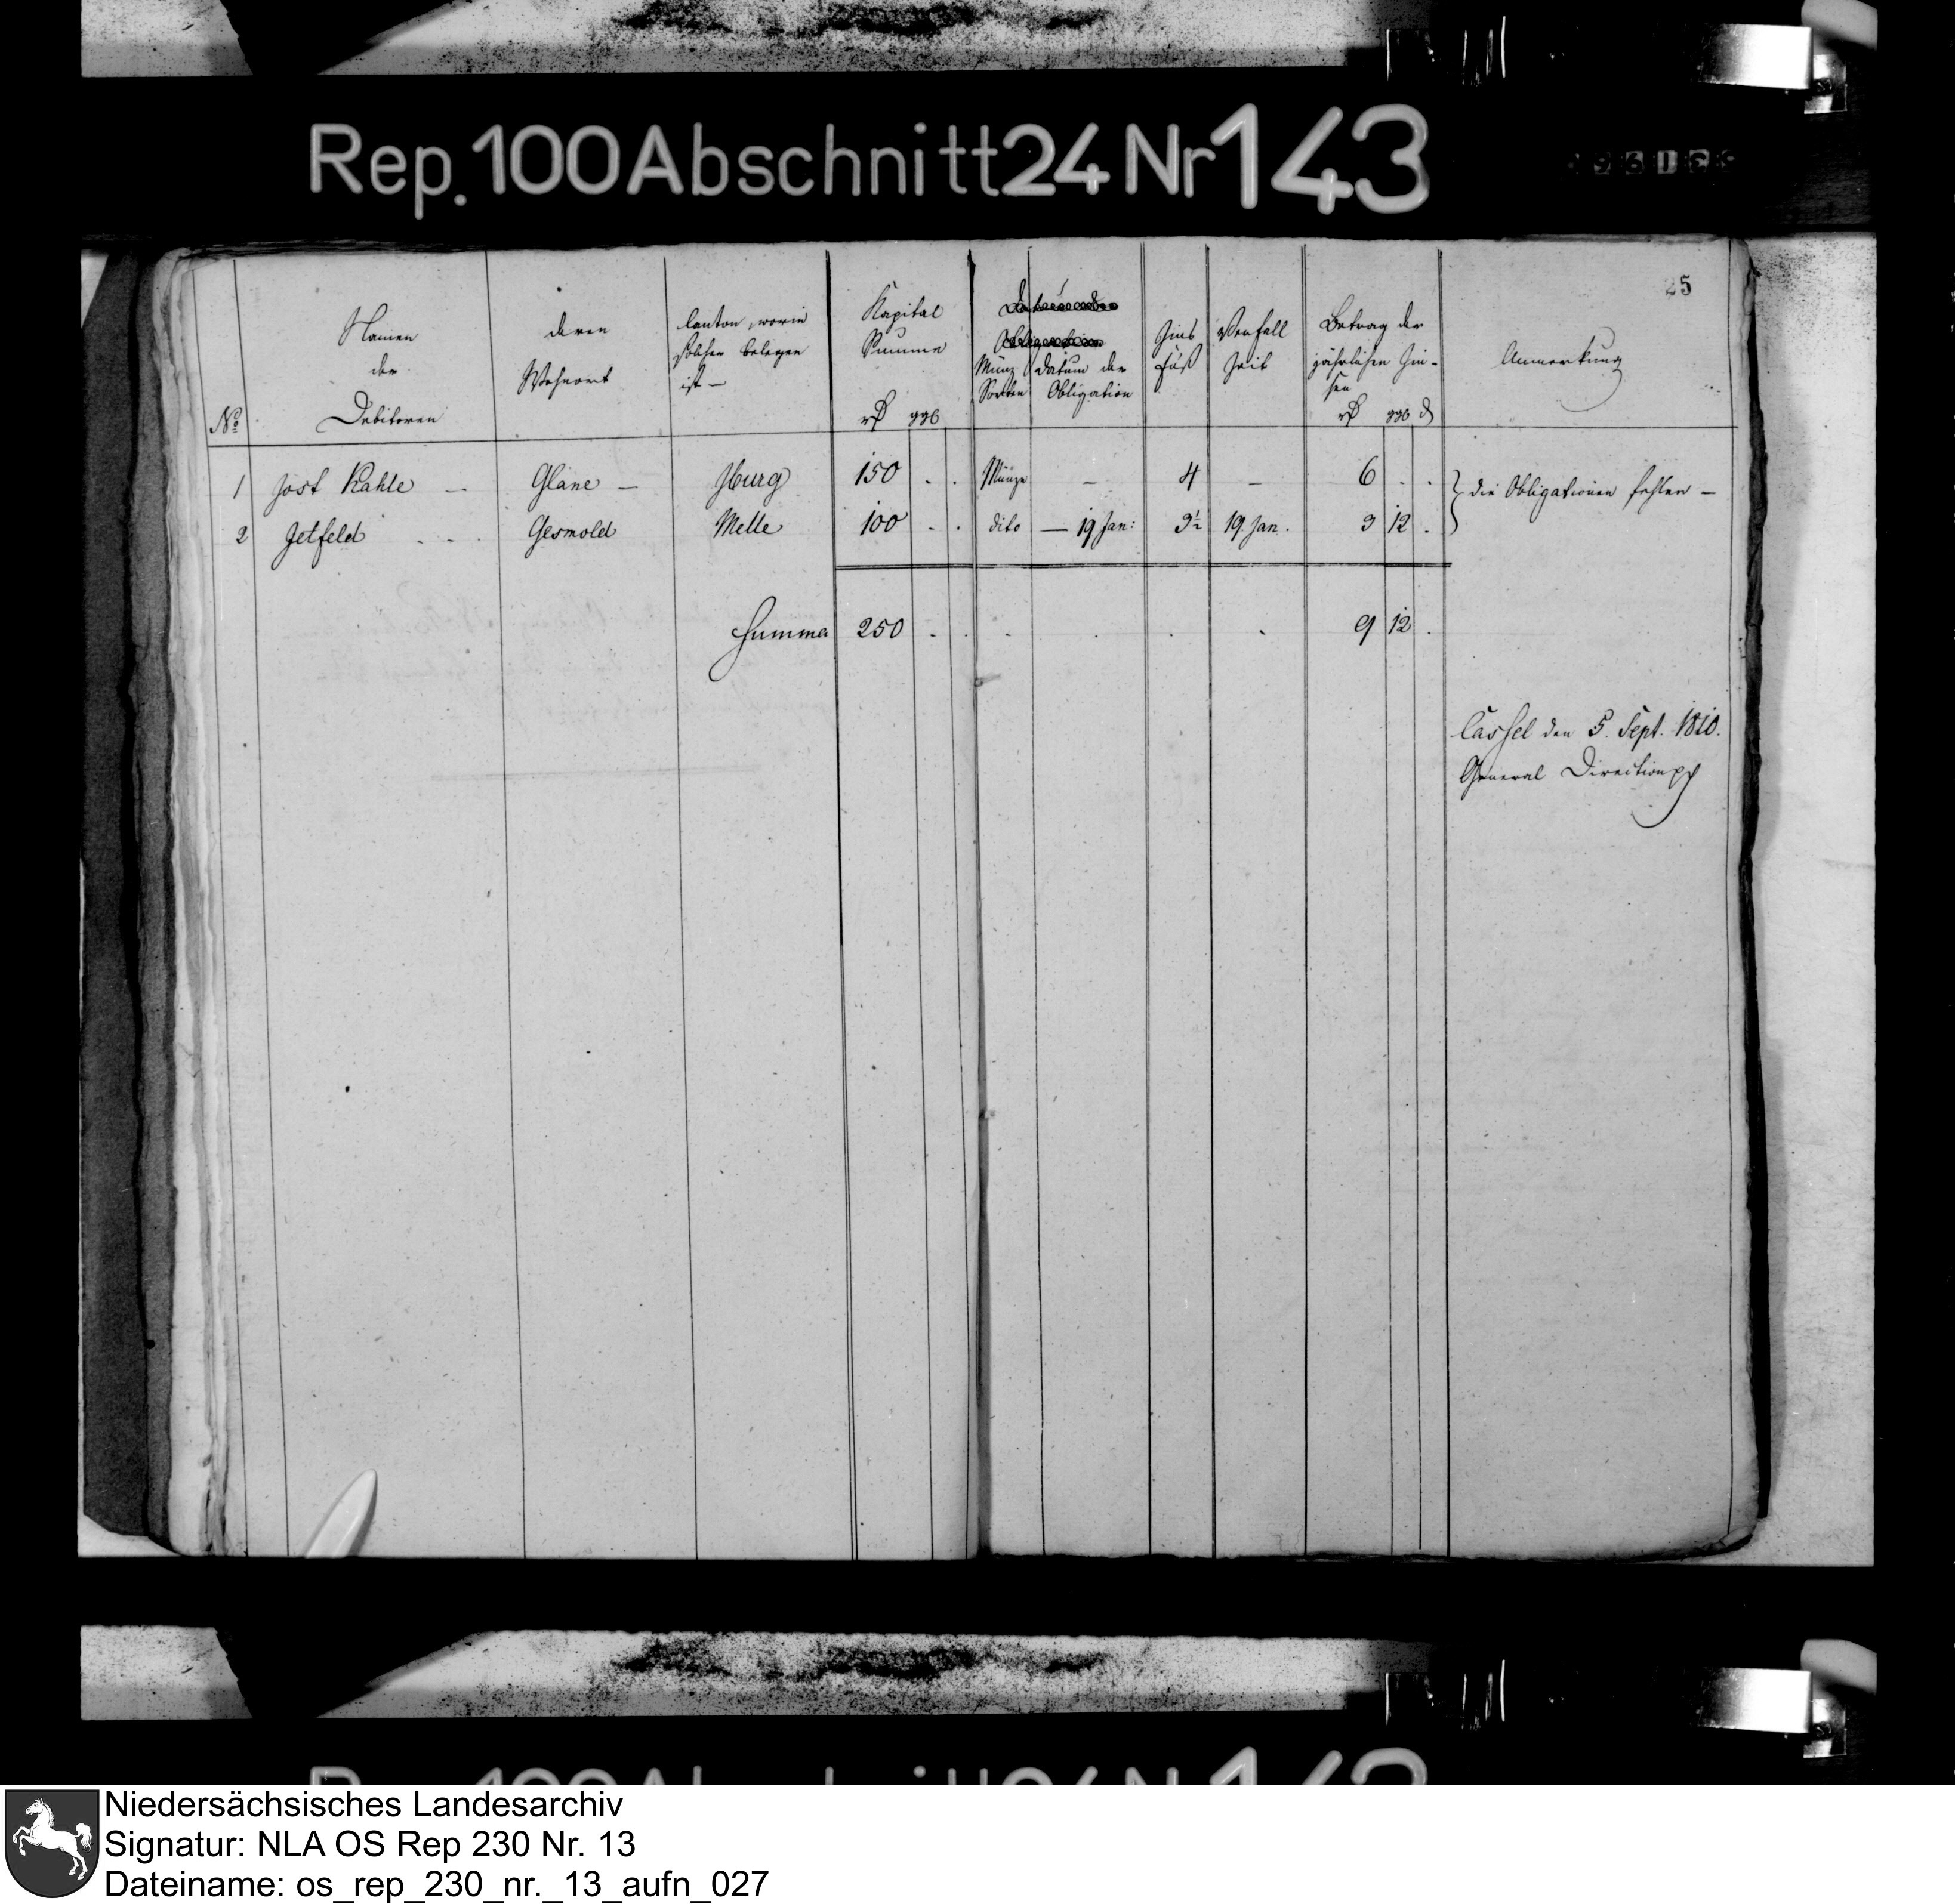 Rep. 100 Abschnitt 24 Nr 143
25
No
Namen
der
Debitoren
deren
Wohnort
Canton, worin
solcher belegen
ist —
Kapital
Summe
rth ggl
Münz
Sorten
Datum der
Obligation
Zins
Fuß
Verfall
Zeit
Betrag der
jährlichen Zin-
sen
rth ggl d
Anmerkung
1 Jost Kahle — Glane — Iburg 150 . . Münze — 4 — 6 . . die Obligationen fehlen —
2 Jetfeld . - . Gesmold Melle 100 . . dito — 19 Jan: 3½ 19. Jan. 3 12 .
Summa 250 . . . . . . 9 12 .
Cassel den 5. Sept. 1810.
General Direction
Niedersächsisches Landesarchiv
Signatur: NLA OS Rep 230 Nr. 13
Dateiname: os_rep_230_nr._13_aufn_027